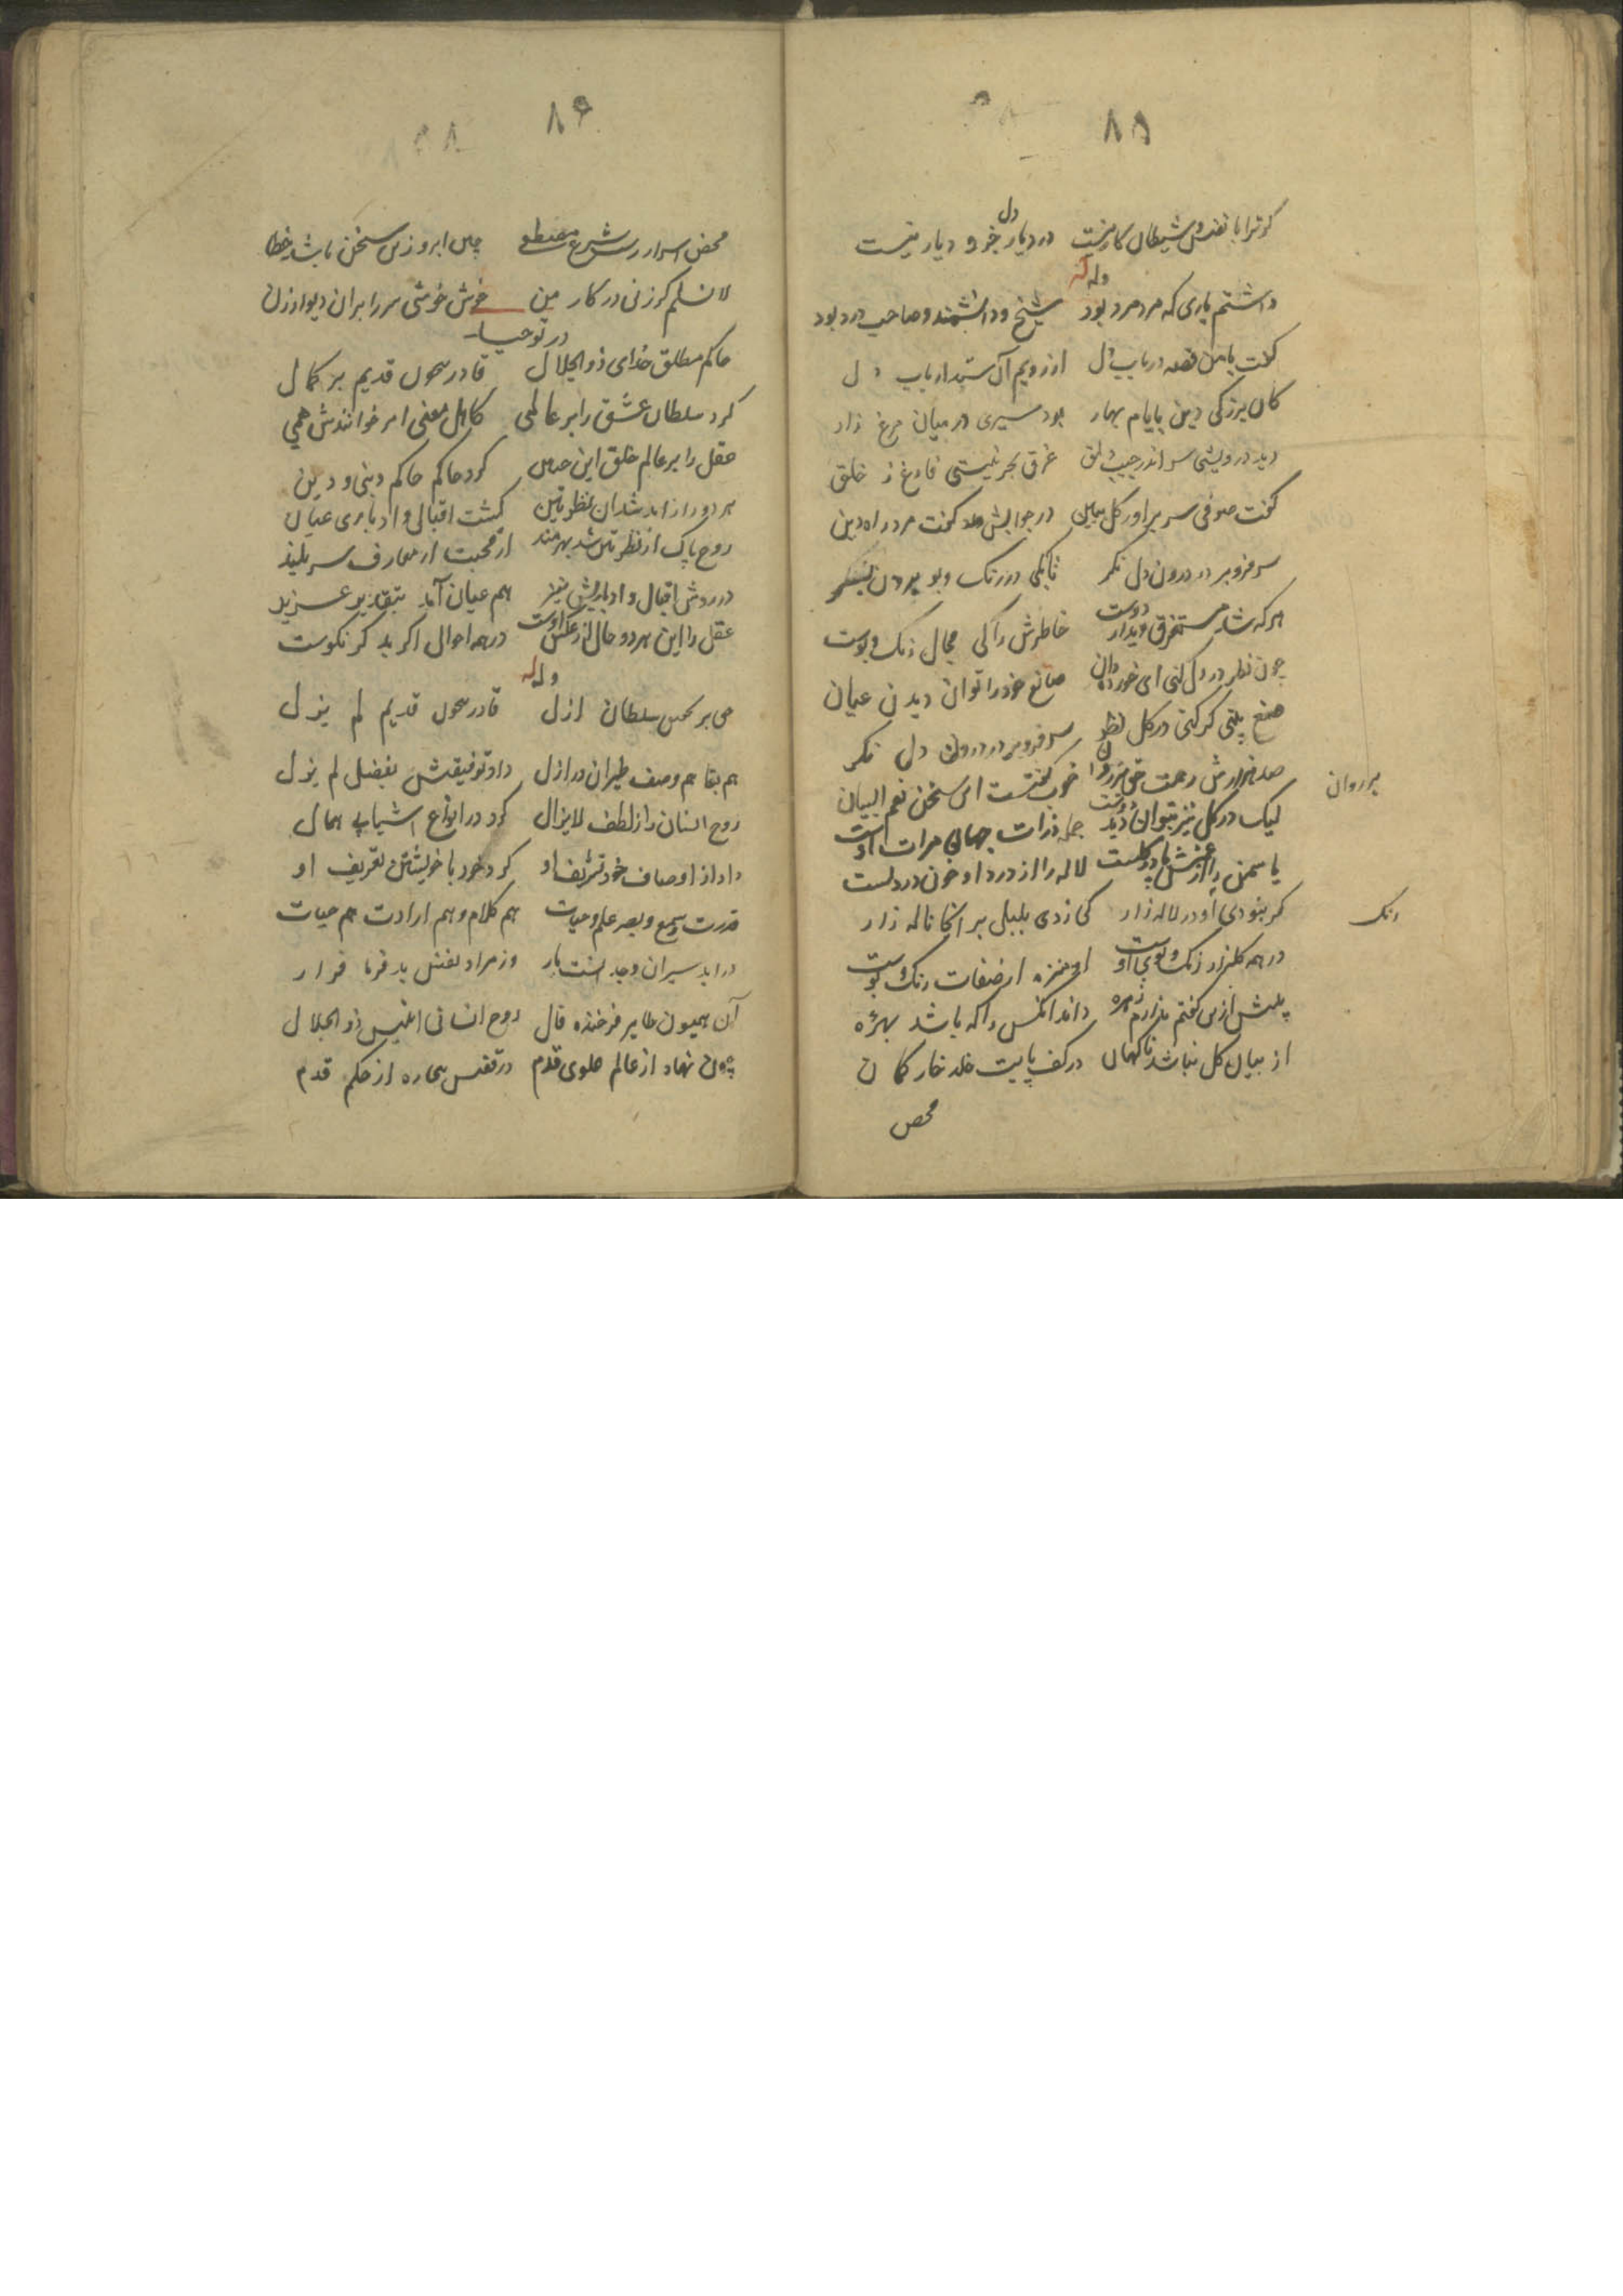 ۸۵
کر ترا با نفس و شیطان کار نیست در دیار دل جز و دیار نیست
وله
داشتم یاری که مرد مرد بود شیخ و دانشمند و صاحب درد بود
کفت با من قصه در باب دل ارباب دل
کان بزرکی دین بایام بهار بود سیری در میان مرغ زار
دید درویشی سر اندر جیب دلق غرق بحر نیستی فارغ ز خلق
کفت صوفی سر براور کل ببین در جوابش کفت مرد راه دین
سر فرو بر در درون دل نکر تا بکی در رنک و بو بیرون نکر
هر که شد مستغرق دیدار دوست خاطرش را کی مجال رنک و بوست
چون نظر در دل کنی ای خورده دان صانع خود را توان دیدن عیان
صنع بینی کر کنی در کل نظر سر فرو بر در درون دل نکر
صد هزارش رحمت حق بر روان خوب کفتست این سخن نعم البیان
بر روان
لیک در کل نیز بتوان دید دوست جمله ذرات جهان مرات اوست
یاسمن را لاله را از درد او خون در دلست
کر نبودی او در لاله زار کی زدی بلبل بر انجا ناله زار
رنک
در همه کلزار رنک و بوی اوست او منزه از صفات رنک و بوست
بیش ازین کفتم ندارم زهره داند انکس را که باشد بهره
از میان کل نباشد ناکهان در کف پایت خلد خار کمان
محض
۸۶
محض اسرار شرع مصطفی چین ابرو زین سخن باشد خطا
لا نسلم کر زنی در کار من خوش خوشی سر را بران دیوار زن
در توحید
حاکم مطلق خدای ذو الجلال قادر بیچون قدیم بر کمال
کرد سلطان عشق را بر عالمی کاهل معنی امر خوانندش همی
عقل را بر عالم خلق این چنین کرد حاکم حاکم دنیی و دین
هر دو را از ابد شد ان نظر کشت اقبالی و ادباری عیان
روح پاک از نظر شد بهرمند از محبت از معارف سر بلند
در ردش اقبال و ادباریش نیز هم عیان آمد بتقدیر عزیز
عقل را این هر دو حال از عکس اوست در همه احوال اکر بد کر نکوست
وله
سلطان ازل قادر بیچون قدیم لم یزل
هم بقا هم وصف طیران در ازل داد توفیقش بفضل لم یزل
روح انسان را ز لطف لایزال کرد در انواع اشیا بی همال
داد از اوصاف خود تشریف او کرد خود با خویشتن تعریف او
قدرت و سمع و بصر علم و حیات هم کلام و هم ارادت هم حیات
وز مراد نفس بد فرما قرار
آن همیون طایر فرخنده فال روح انسانی انیس ذو الجلال
چون نهاد از عالم علوی قدم در قفس بیچاره از حکم قدم